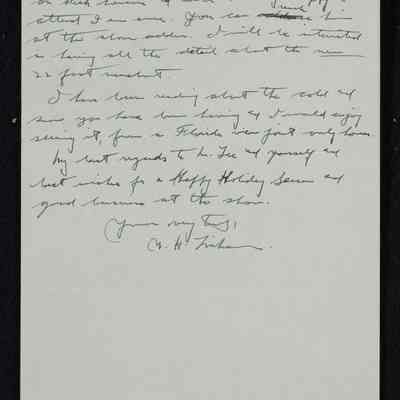 attend I am sure. You can
at the above address. I will be interested
in having all the detail about the new
22 foot runabout.
I have been reading about the cold and
snow you have been having and I would enjoy
seeing it, from a Florida view point only however
My best regards to Mr. Lee and yourself and
best wishes for a Happy Holiday Season and
good business at the show.
Yours very truly,
H.